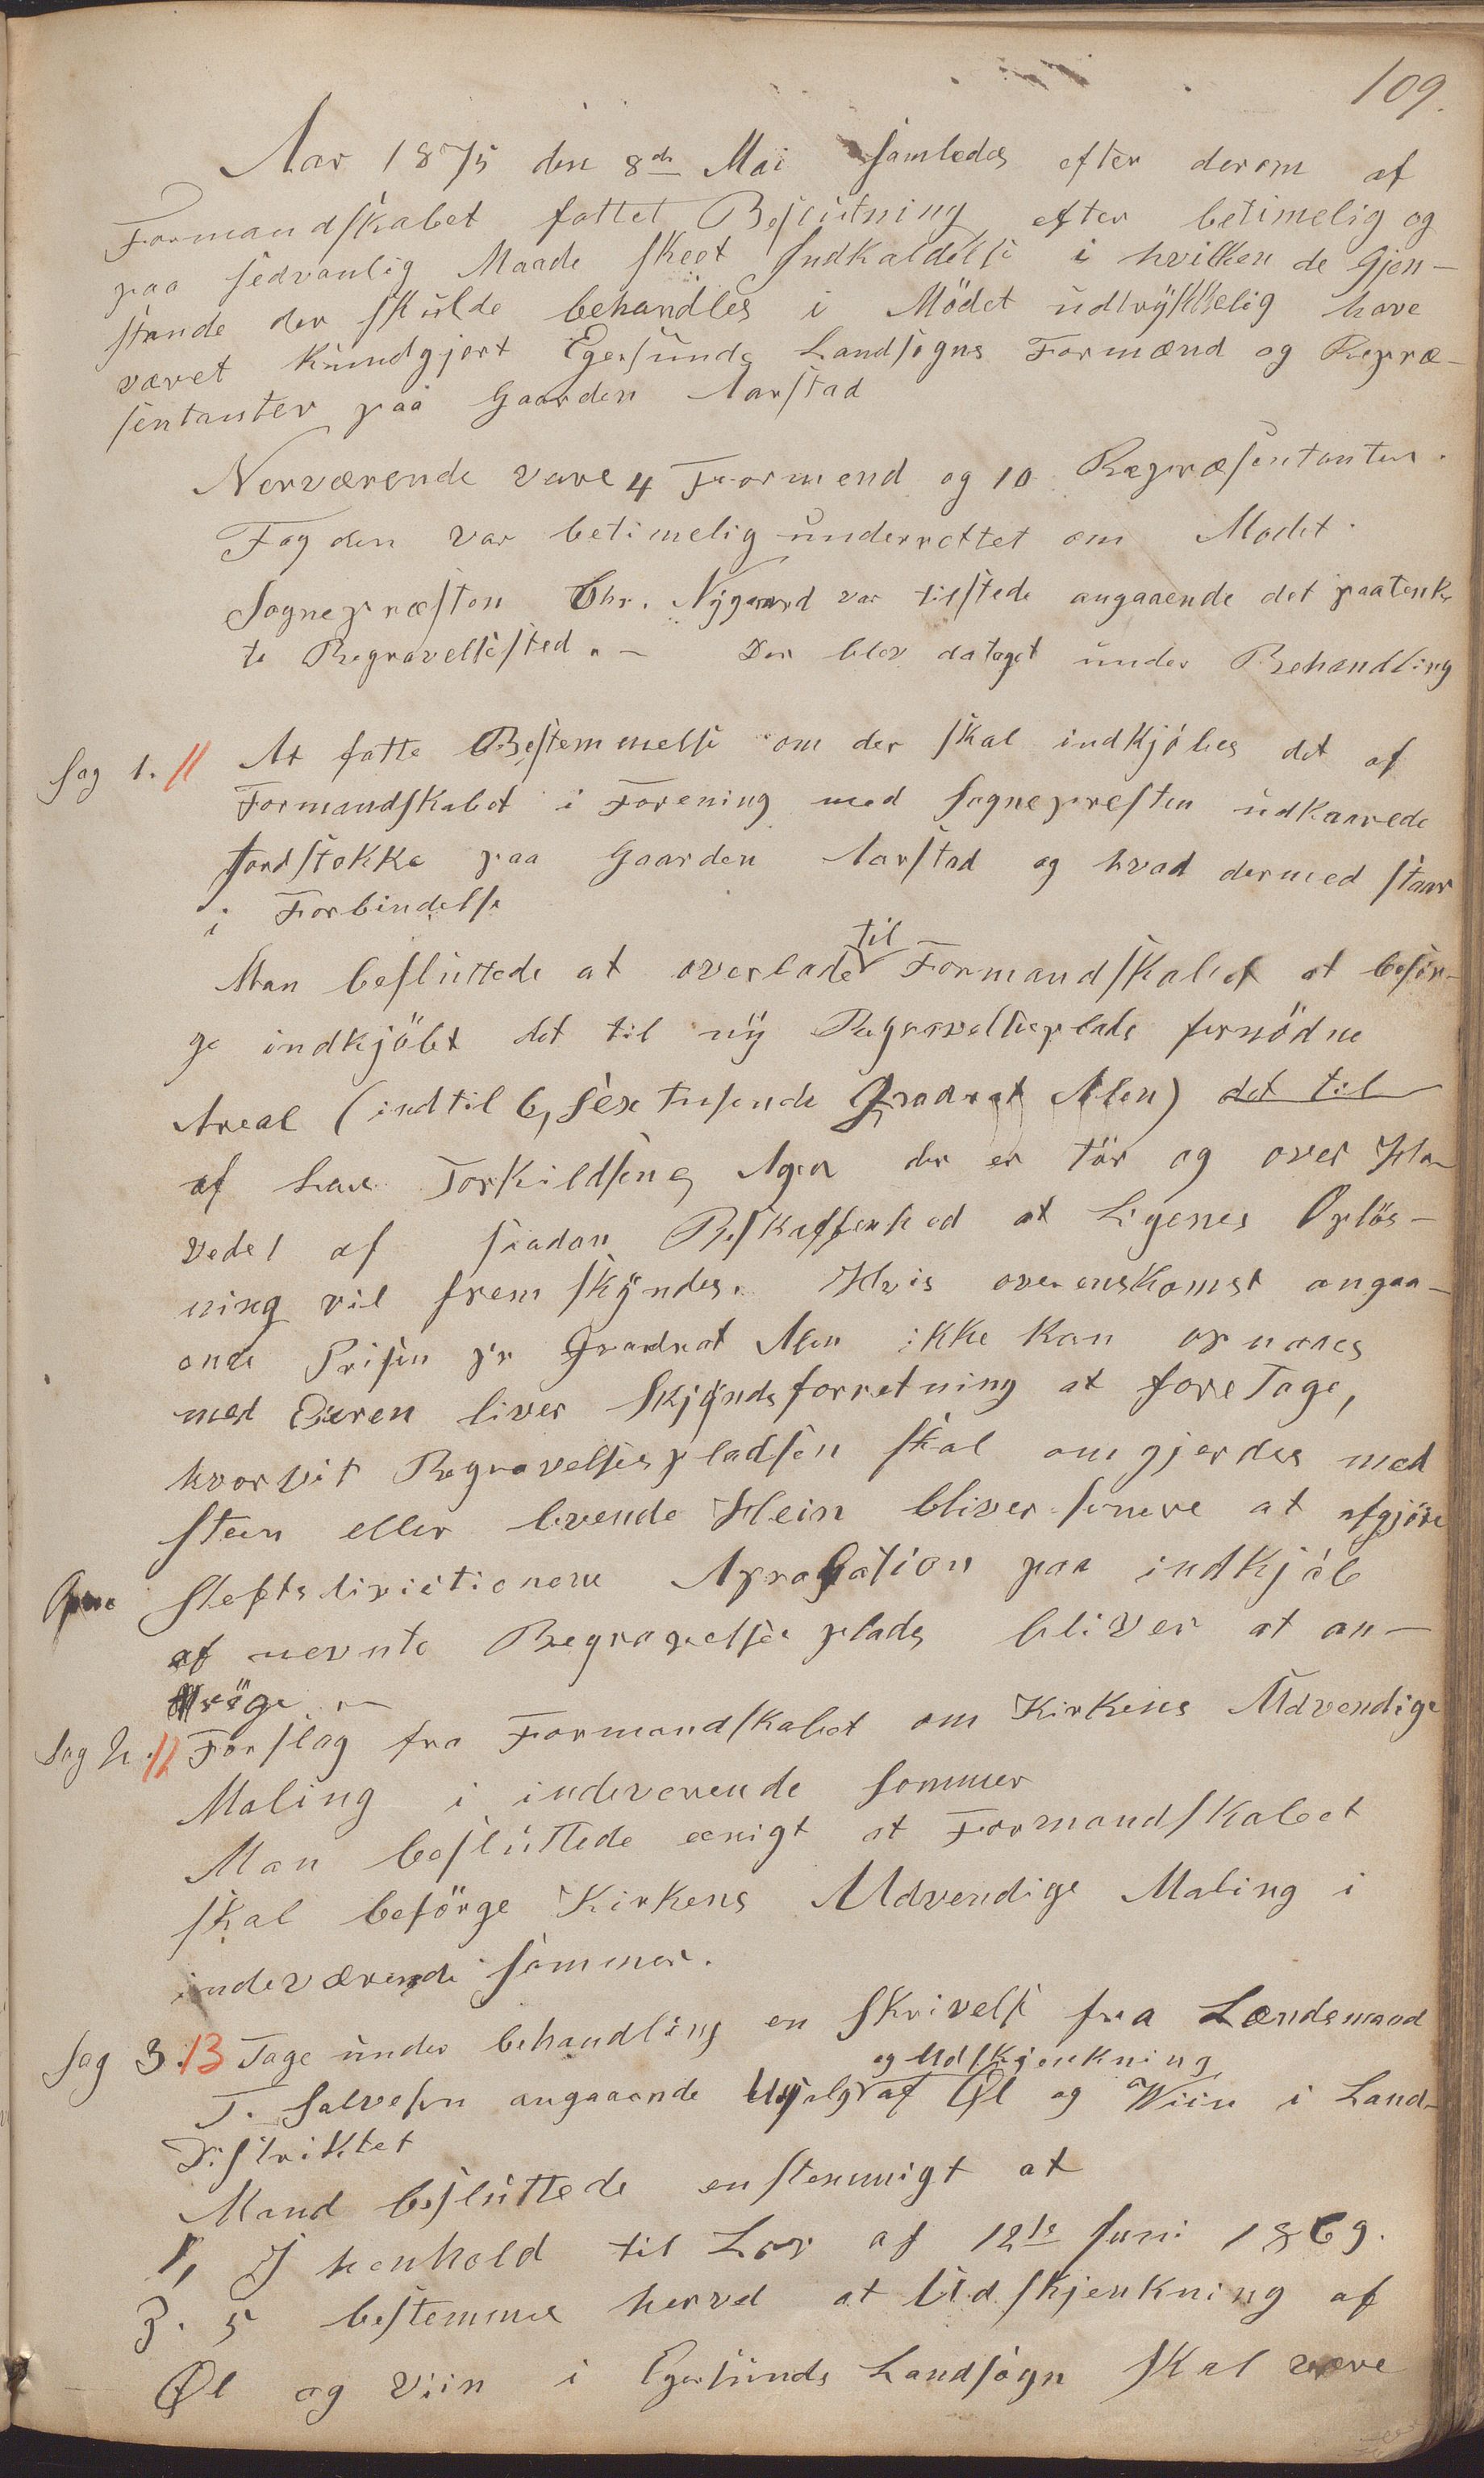 109.
Aar 1875 den 8de Mai samledes efter derom af
Formandskabet fattet Beslutning efter betimelig og
paa sedvanlig Maade skeet Indkaldelse i hvilken de Gjen-
stande der skulde behandles i Mödet udtrykkelig have
været kundgjort Egersunds Landsogns Formænd og Repræ-
sentanter paa Gaarden Aarstad
Nerværende vare 4 Formend og 10 Repræsentanter.
Fogden var betimelig underrettet om Modet.
Sognepræsten Chr. Nygaard var tilstede angaaende det paatenk-
te Begravelsested. - Der blev da taget under Behandling
Sag 1. 11 At fatte Bestemmelse om der skal indkjöbes det af
Formandskabet i Forening med Sognepresten udkaarede
Jordstøkke paa Gaarden Aarstad og hvad dermed staar
i Forbindelse
Man besluttede at overlade til Formandskabet at besör-
ge indkjöbt det til ny Begravelseplads fornödne
Areal (indtil 6, sex tusende Qvadrat Alen) det til
af Lars Torkildsens Ager der er tör og over Ho-
vedet af saadan Beskaffenhed at Ligenes Oplös-
ning vil fremskyndes. Hvis overenskomst angaa-
ende Prisen pr Qvadrat Alen ikke kan opnaaes
med Eieren bliver Skjöndsforretning at foretage,
hvorvit Begravelsespladsen skal omgjerdes med
Steen eller levende Hein bliver senere at afgjöre
Stiftsdirectionens Aprobation paa indkjöb
af nevnte Begravelses plads bliver at an-
dräge. -
Sag 2. 12 Forslag fra Formandskabet om Kirkens Udvendige
Maling i indeverende Sommer
Man besluttede eenigt at Formandskabet
skal besörge Kirkens Udvendige Maling i
indeværende Sommer.
Sag 3. 13 Tage under behandling en Skrivelse fra Lændsmand
og Udskjenkning
T. Salvesen angaaende Udsalg af Øl og Viin i Land-
Distriktet
Mand besluttede enstemmigt at
1, I henhold til Lov af 12te Juni 1869.
§. 5 bestemmes herved at Udskjenkning af
Øl og Viin i Egersunds Landsogn skal være